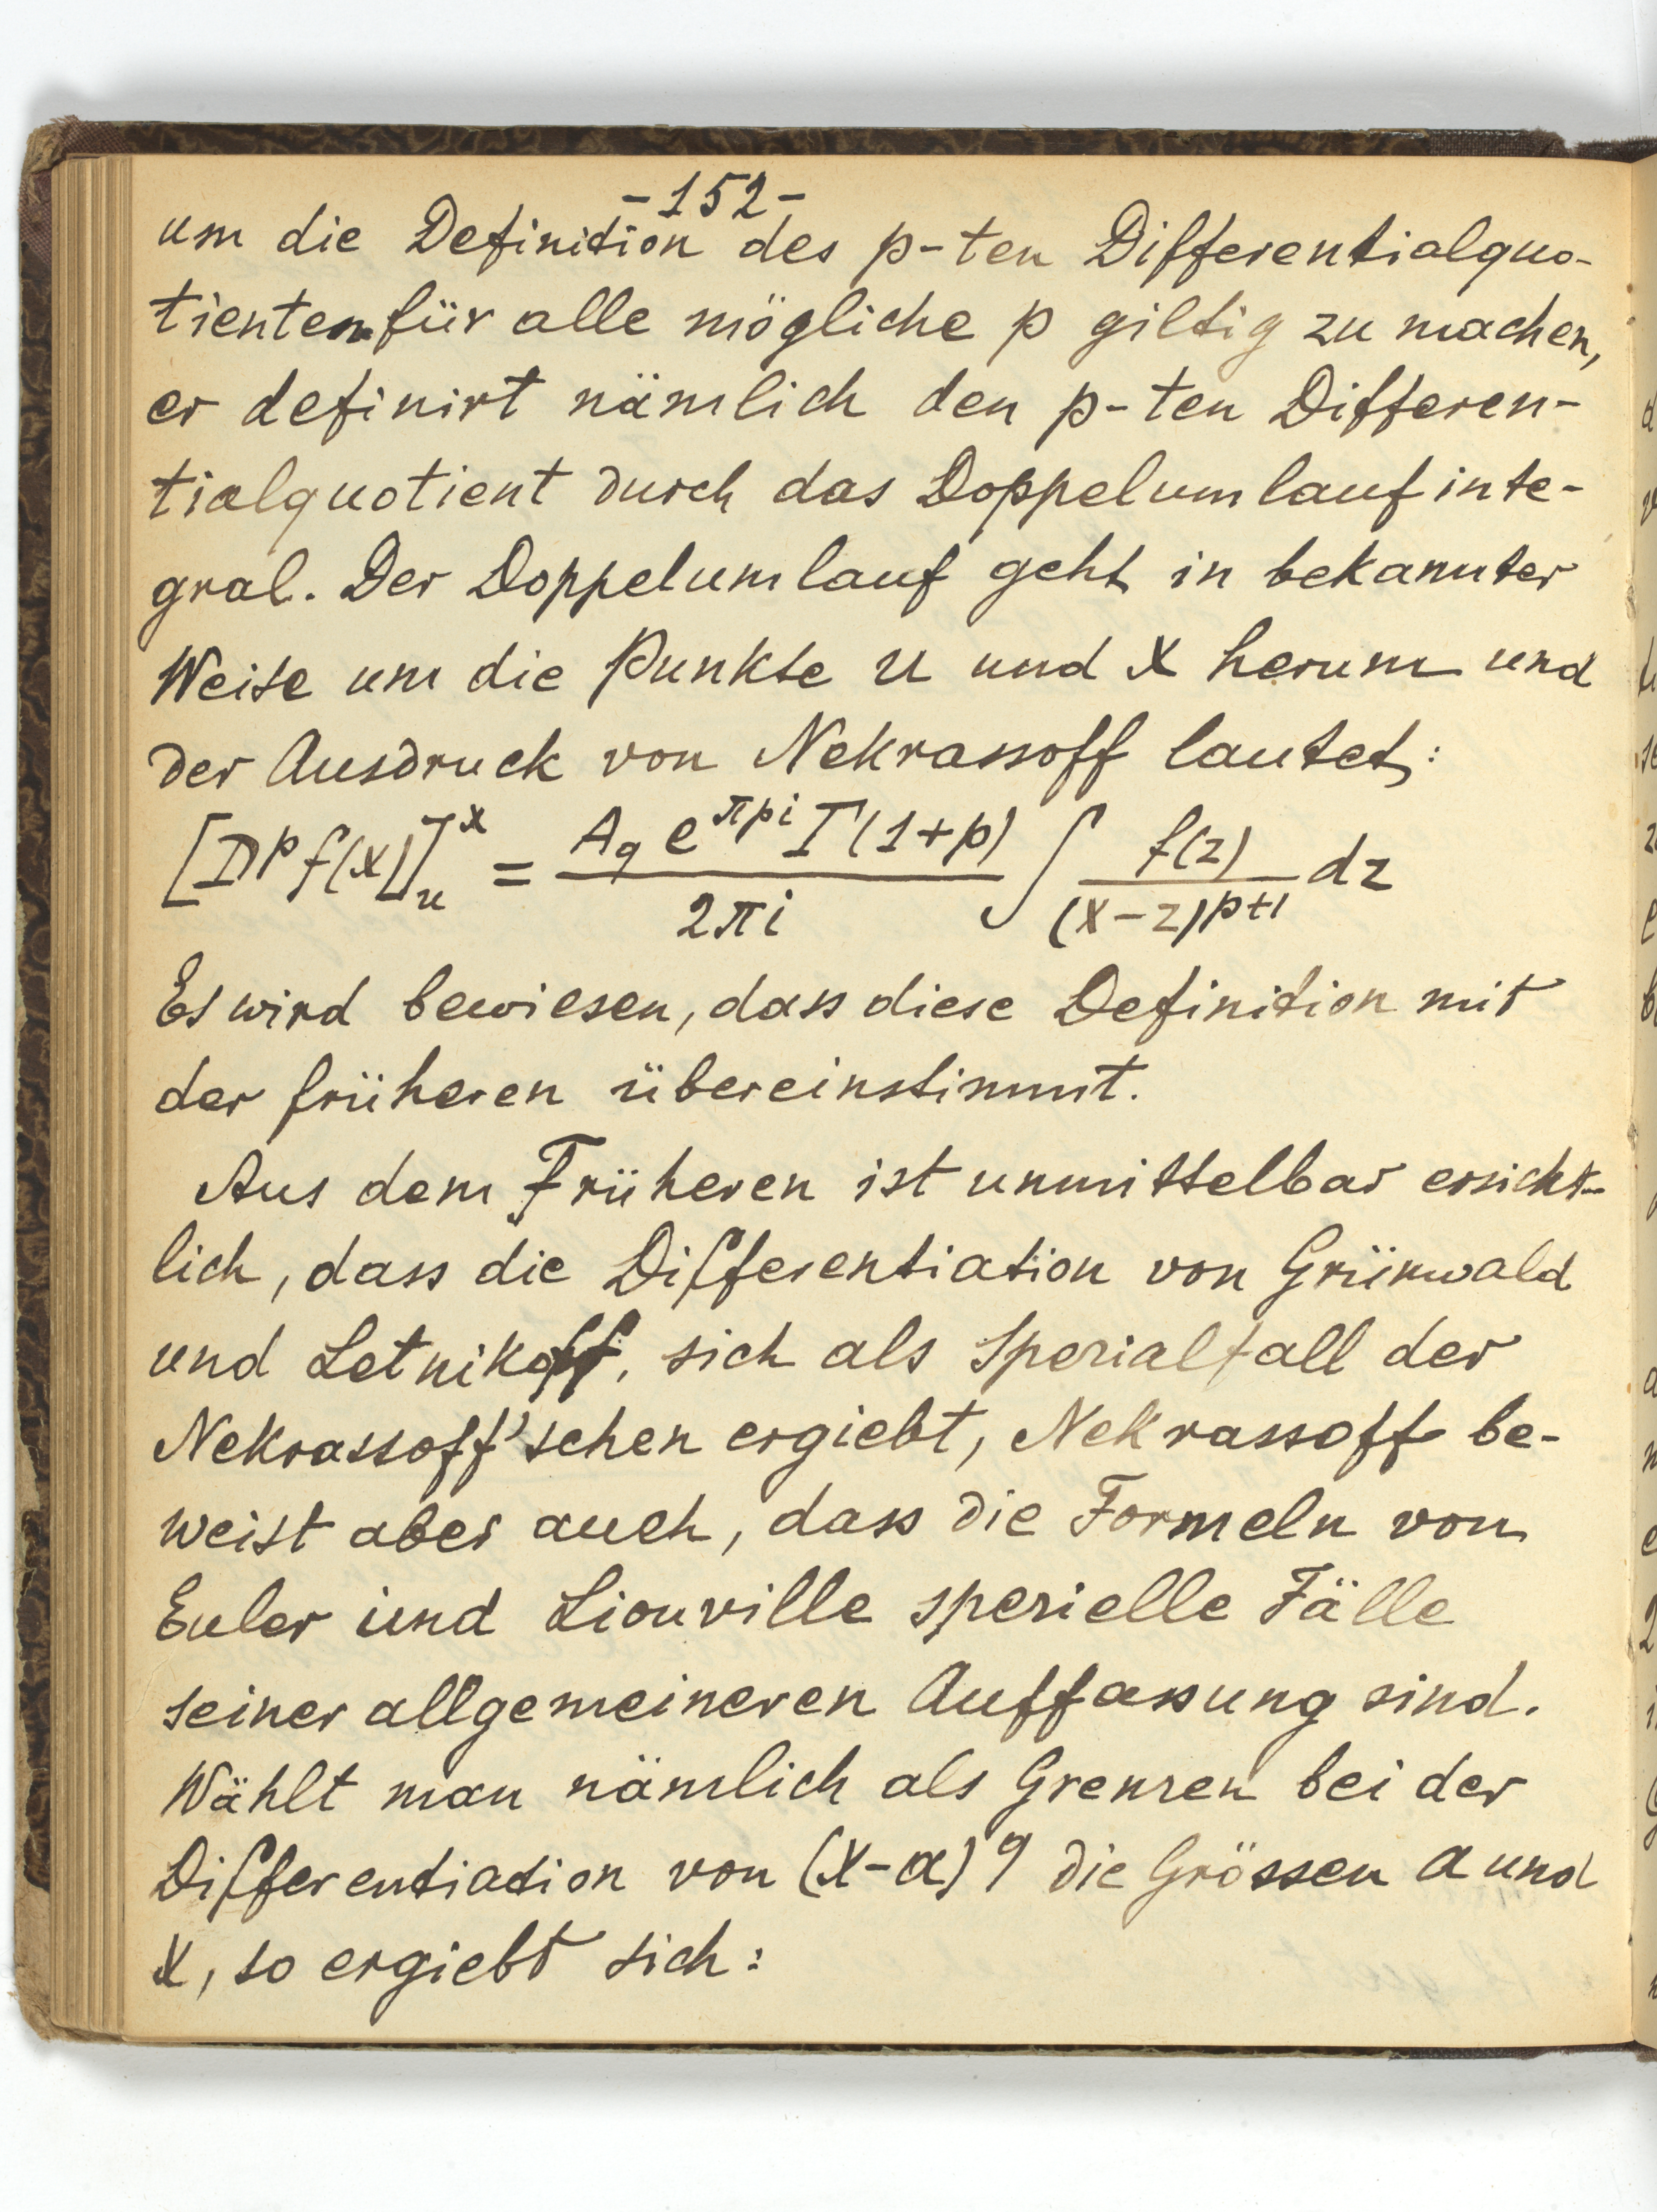 -152-
um die Definition des p-ten Differentialquo-
tienten für alle mögliche p giltig zu machen,
er definirt nämlich den p-ten Differen-
tialquotient durch das Doppelumlaufinte-
gral. Der Doppelumlauf geht in bekannter
Weise um die Punkte u und x herum und
der Ausdruck von Nekrassoff lautet:
[D^p f(x)]_u^x = \frac{A_q e^{πpi} Γ(1+p)}{2πi} ∫ \frac{f(z)}{(x-z)^{p+1}} dz
Es wird bewiesen, dass diese Definition mit
der früheren übereinstimmt.
Aus dem Früheren ist unmittelbar ersicht-
lich, dass die Differentiation von Grünwald
und Letnikoff, sich als Spezialfall der
Nekrassoff'schen ergiebt, Nekrassoff be-
weist aber auch, dass die Formeln von
Euler und Liouville spezielle Fälle
seiner allgemeineren Auffassung sind.
Wählt man nämlich als Grenzen bei der
Differentiation von (x-a)^q die Grössen a und
x, so ergiebt sich: